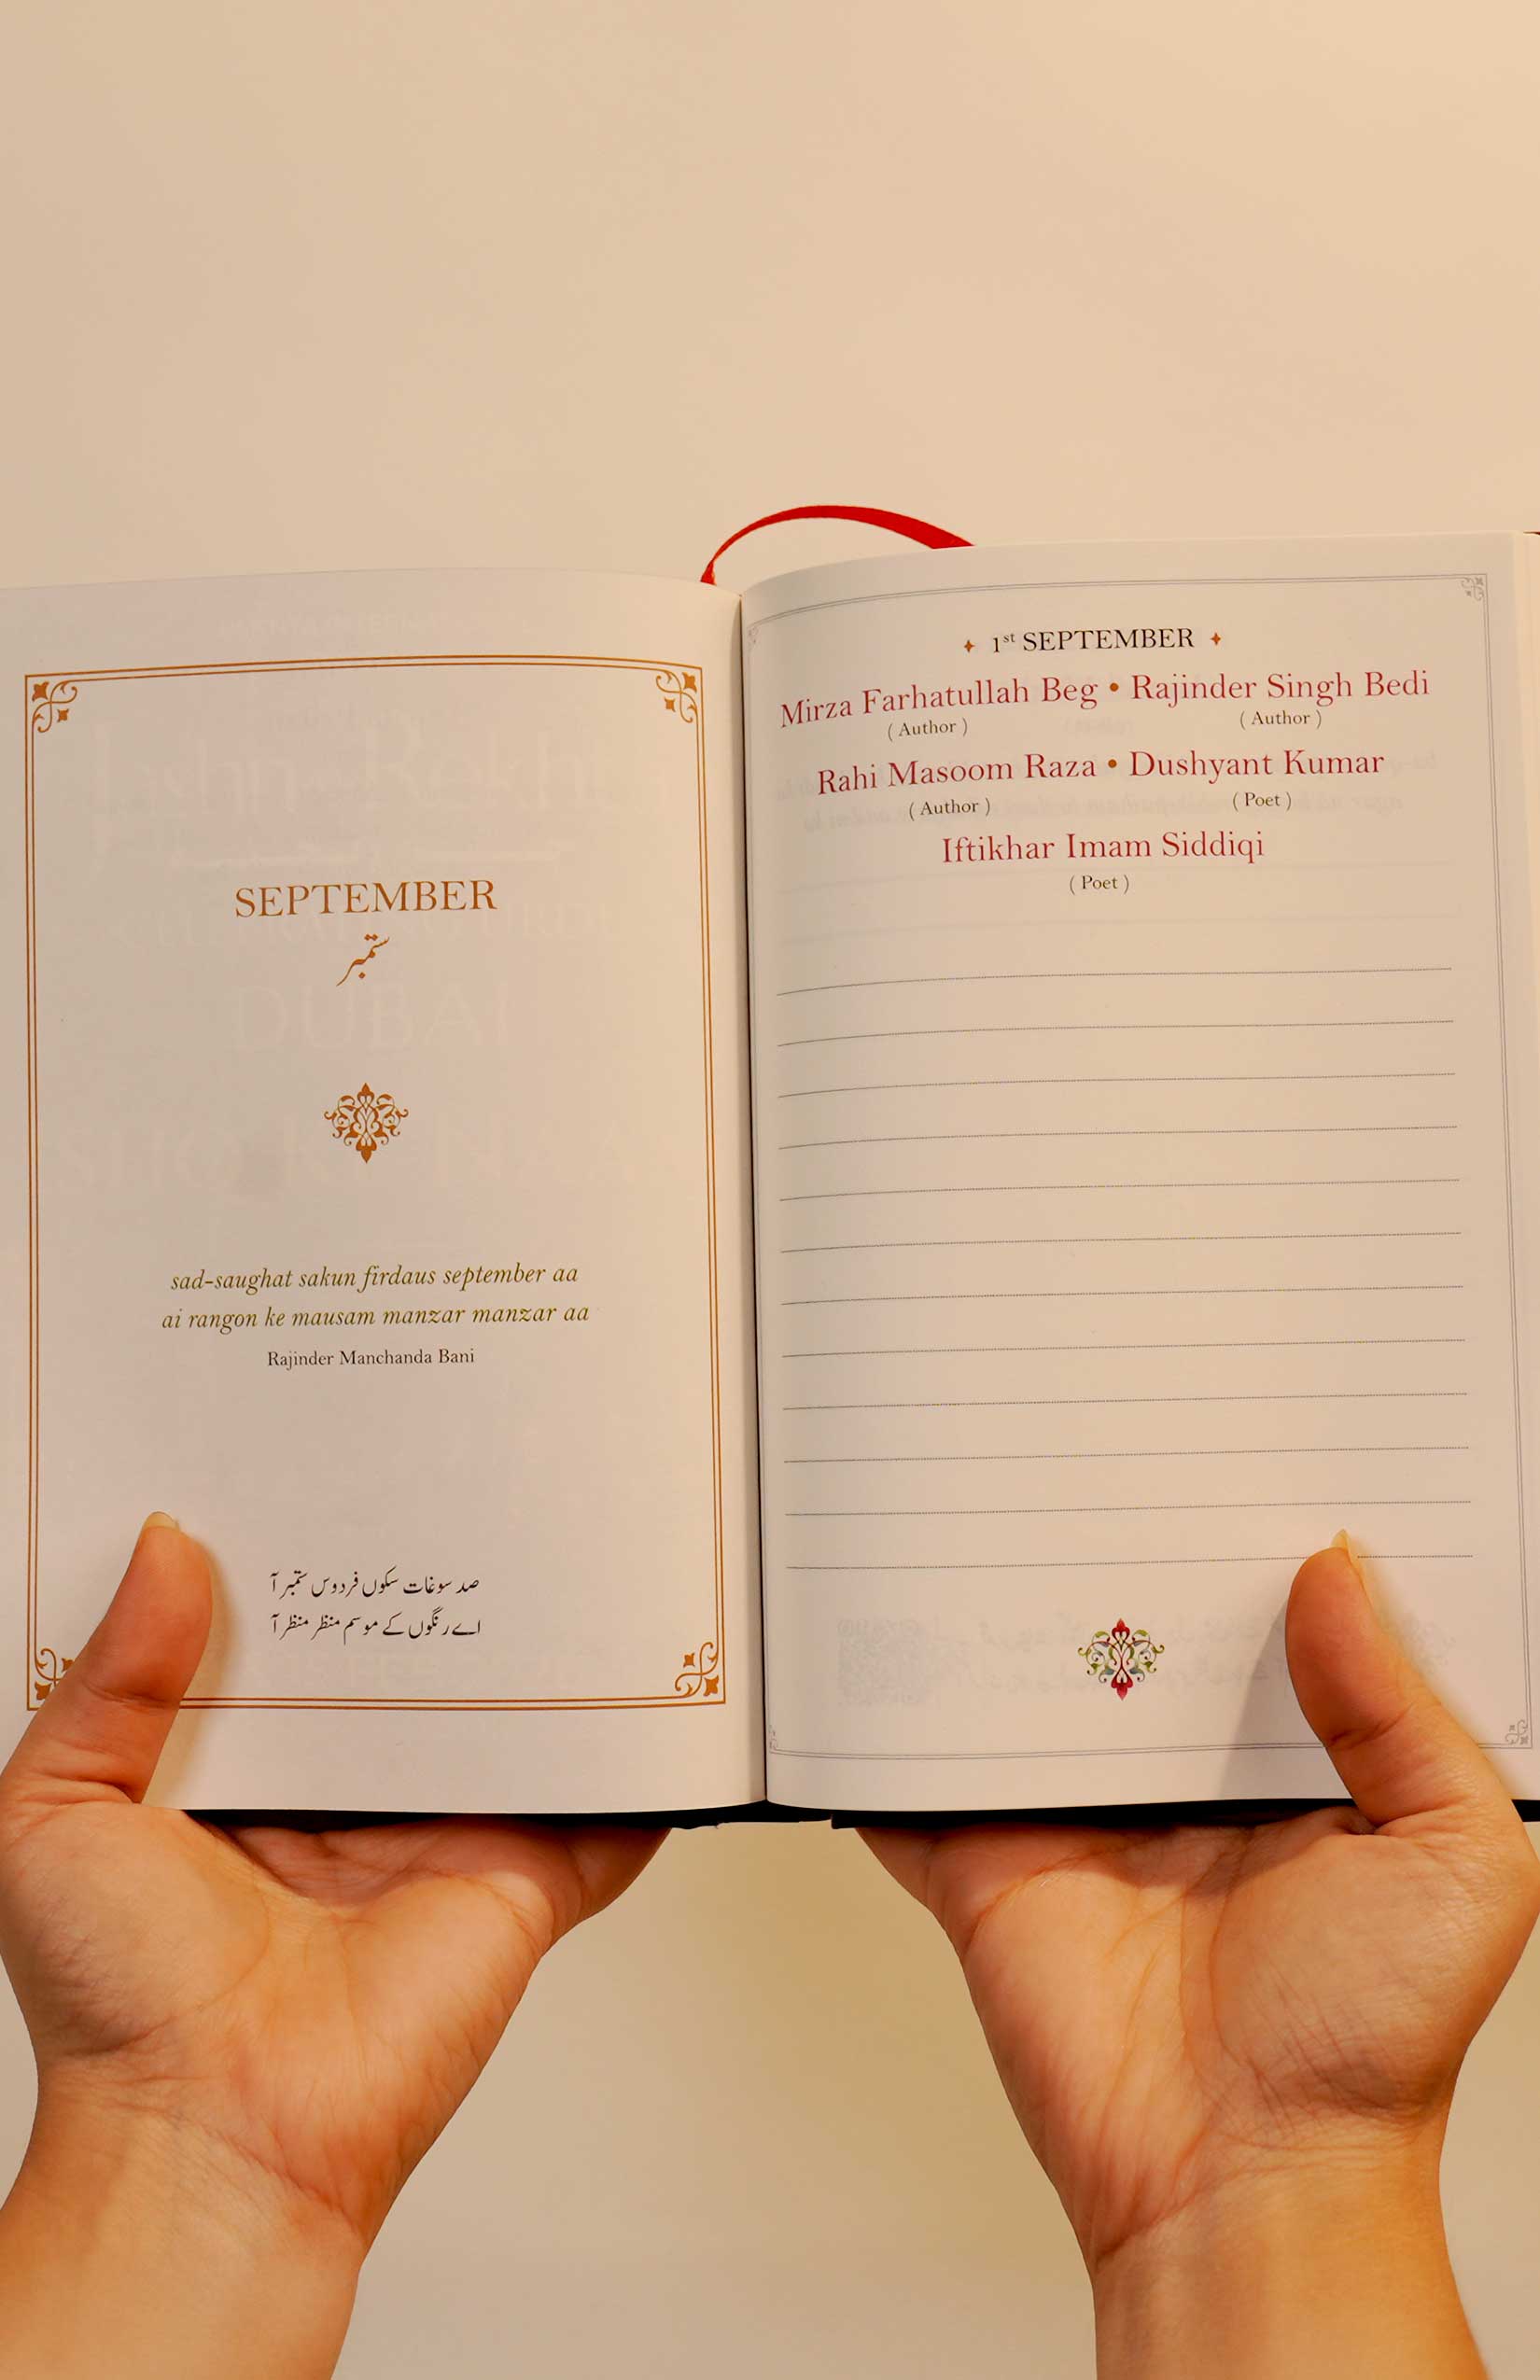 SEPTEMBER
ستمبر
sad-saughat sakun firdaus september aa
ai rangon ke mausam manzar manzar aa
Rajinder Manchanda Bani
صد سوغات سکوں فردوس ستمبر آ
اے رنگوں کے موسم منظر منظر آ
1st SEPTEMBER
Mirza Farhatullah Beg • Rajinder Singh Bedi
( Author ) ( Author )
Rahi Masoom Raza • Dushyant Kumar
( Author ) ( Poet )
Iftikhar Imam Siddiqi
( Poet )